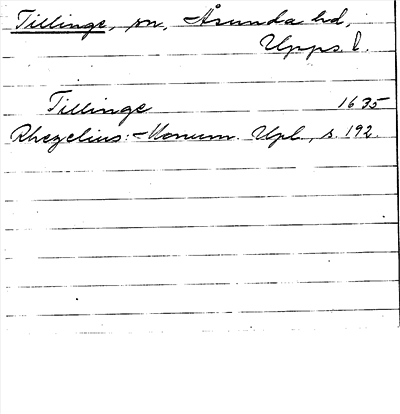 Tillinge, sn, Åsunda hd,
Upps l.
Tillinge 1635
Rhezelius: Monum. Upl., s. 192.